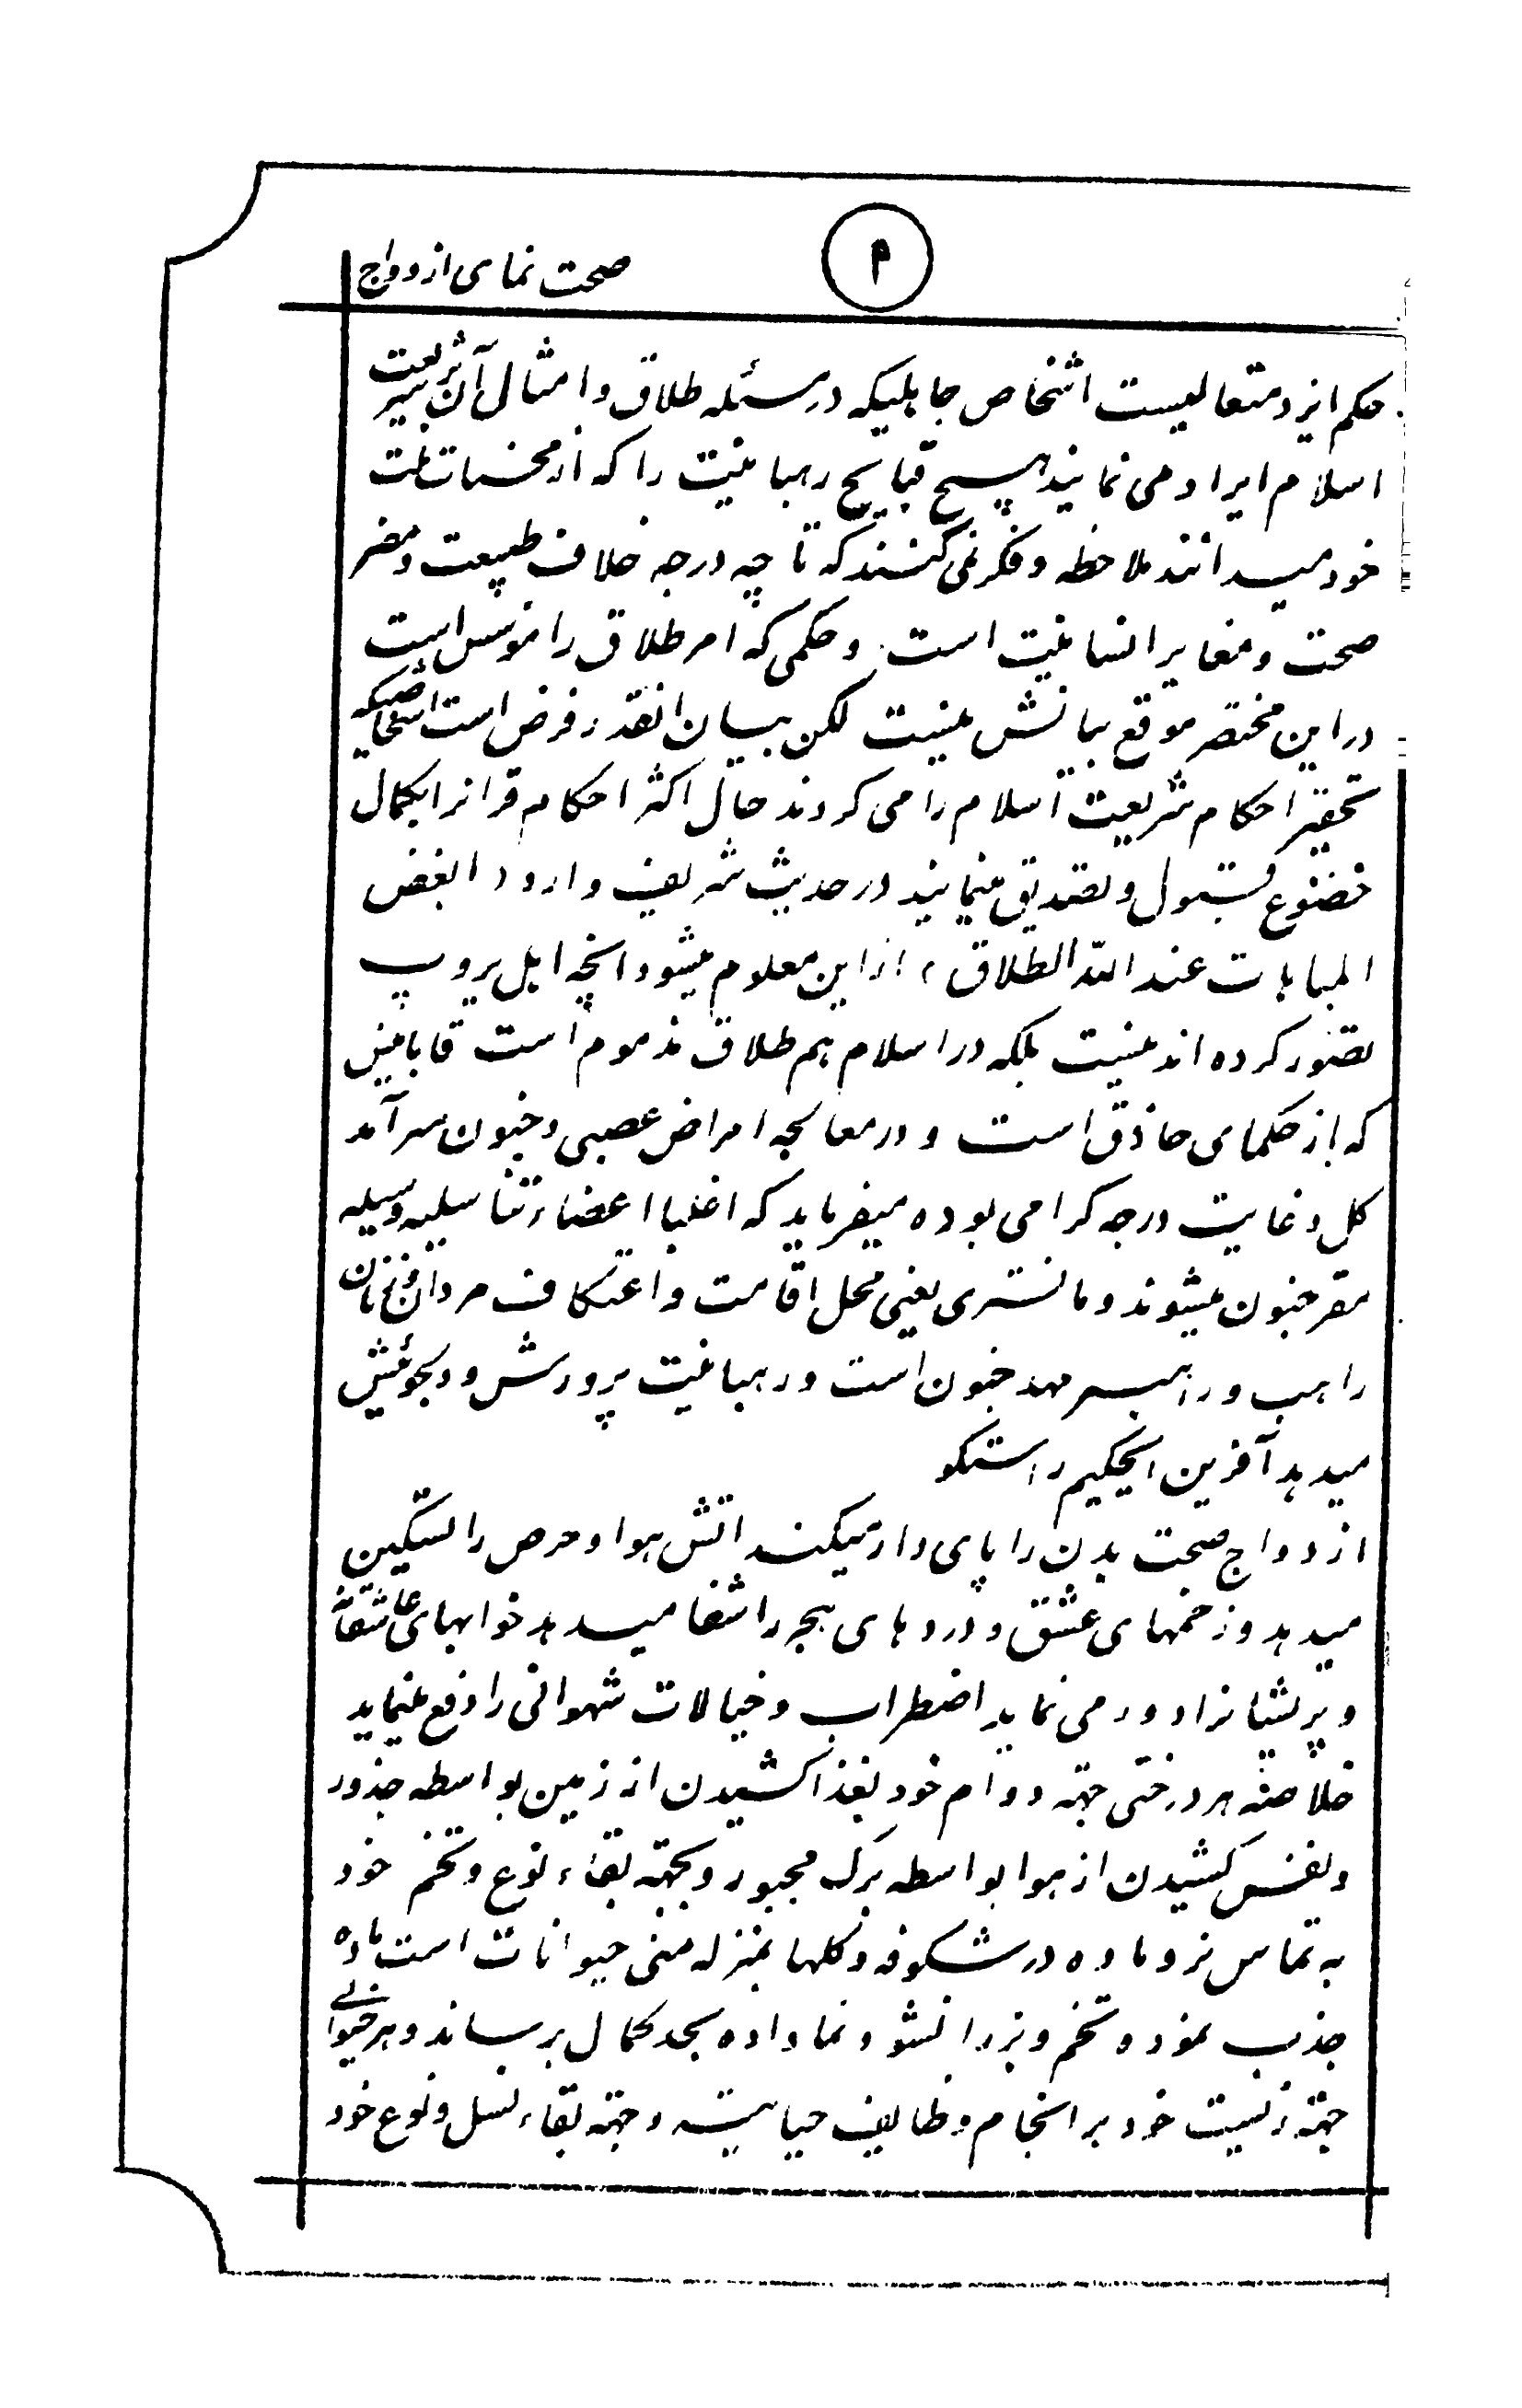 صحت نمای ازدواج
۴
حکم ایزد متعالیست اشخاص جاهلیکه در مسئله طلاق و امثال آن بر شریعت
اسلام ایراد می نمایند هیچ قبایح رهبانیت را که از محسنات ملت
خود میدانند ملاحظه و فکر نمی کنند که تا چه درجه خلاف طبیعت و مضر
صحت و مغایر انسانیت است و حکمی که امر طلاق را مؤسس است
در این مختصر موقع بیانش نیست لکن بیان انقدر فرض است اشخاصیکه
تحقیر احکام شریعت اسلام را می کردند حال اکثر احکام قرانرا بکمال
خضوع قبول و تصدیق مینمایند در حدیث شریف وارد (ابغض
المباحات عند الله الطلاق) از این معلوم میشود انچه اهل یروپ
تصور کرده اند نیست بلکه در اسلام هم طلاق مذموم است قابانیس
که از حکمای حاذق است و در معالجه امراض عصبی و جنون سرآمد
کل و غایت درجه گرامی بوده میفرماید که اغلبا اعضاء تناسلیه وسیله
مقر جنون میشوند و مانستری یعنی محل اقامت و اعتکاف مردان و زنان
راهب و راهبه مهد جنون است و رهبانیت پرورش و دلجوئیش
میدهد آفرین ایحکیم راستگو
ازدواج صحت بدن را پای دار میکند اتش هوا و حرص را تسکین
میدهد و زخمهای عشق و دردهای هجر را شفا میدهد خوابهای عاشقانه
و پریشانرا دور می نماید اضطراب و خیالات شهوانی را دفع مینماید
خلاصه هر درختی جهته دوام خود بغذا کشیدن از زمین بواسطه جذور
و نفس کشیدن از هوا بواسطه برگ مجبور و بجهته بقاء نوع و تخم خود
به تماس نر و ماده در شکوفه و گلها بمنزله منی حیوانات است ماده
جذب نموده تخم و بزر را نشو و نما داده بحد کمال برساند و هر حیوانی
جهته زیست خود بر انجام وظایف حیاتیه و جهته بقاء نسل و نوع خود